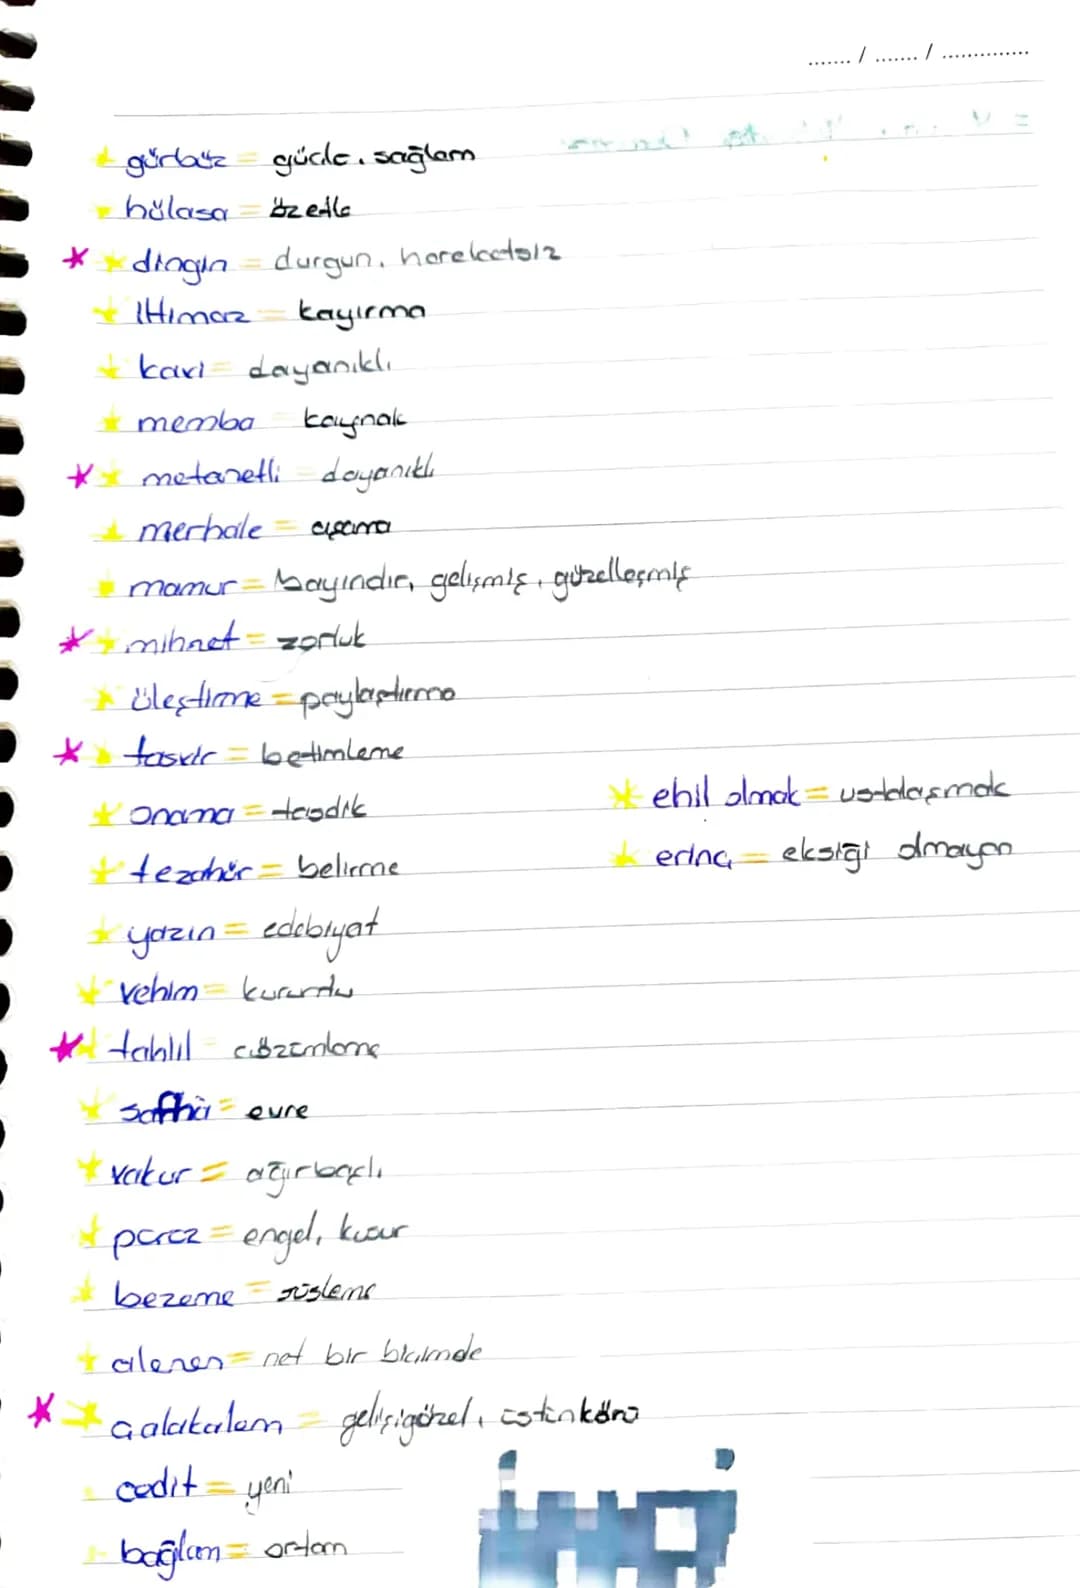 ....... / ....... / ..............
gürbüz = güçlü, sağlam
hülasa = özetle
* dingin = durgun, hareketsiz
iltimaz = kayırma
kavi = dayanıklı
memba kaynak
* metanetli = dayanıklı
merhale = aşama
mamur = bayındır, gelişmiş, güzelleşmiş
* mihnet = zorluk
üleştirme = paylaştırma
* tasvir = betimleme
onama = tasdik
ehil olmak = ustalaşmak
tezahür = belirme
erinç = eksiği olmayan
yazın = edebiyat
vehim = kuruntu
* tahlil = çözümleme
safha = evre
vakur = ağırbaşlı
pürüz = engel, kusur
bezeme = süsleme
alenen = net bir biçimde
* çalakalem = gelişigüzel, üstünkörü
cedit = yeni
bağlam = ortam